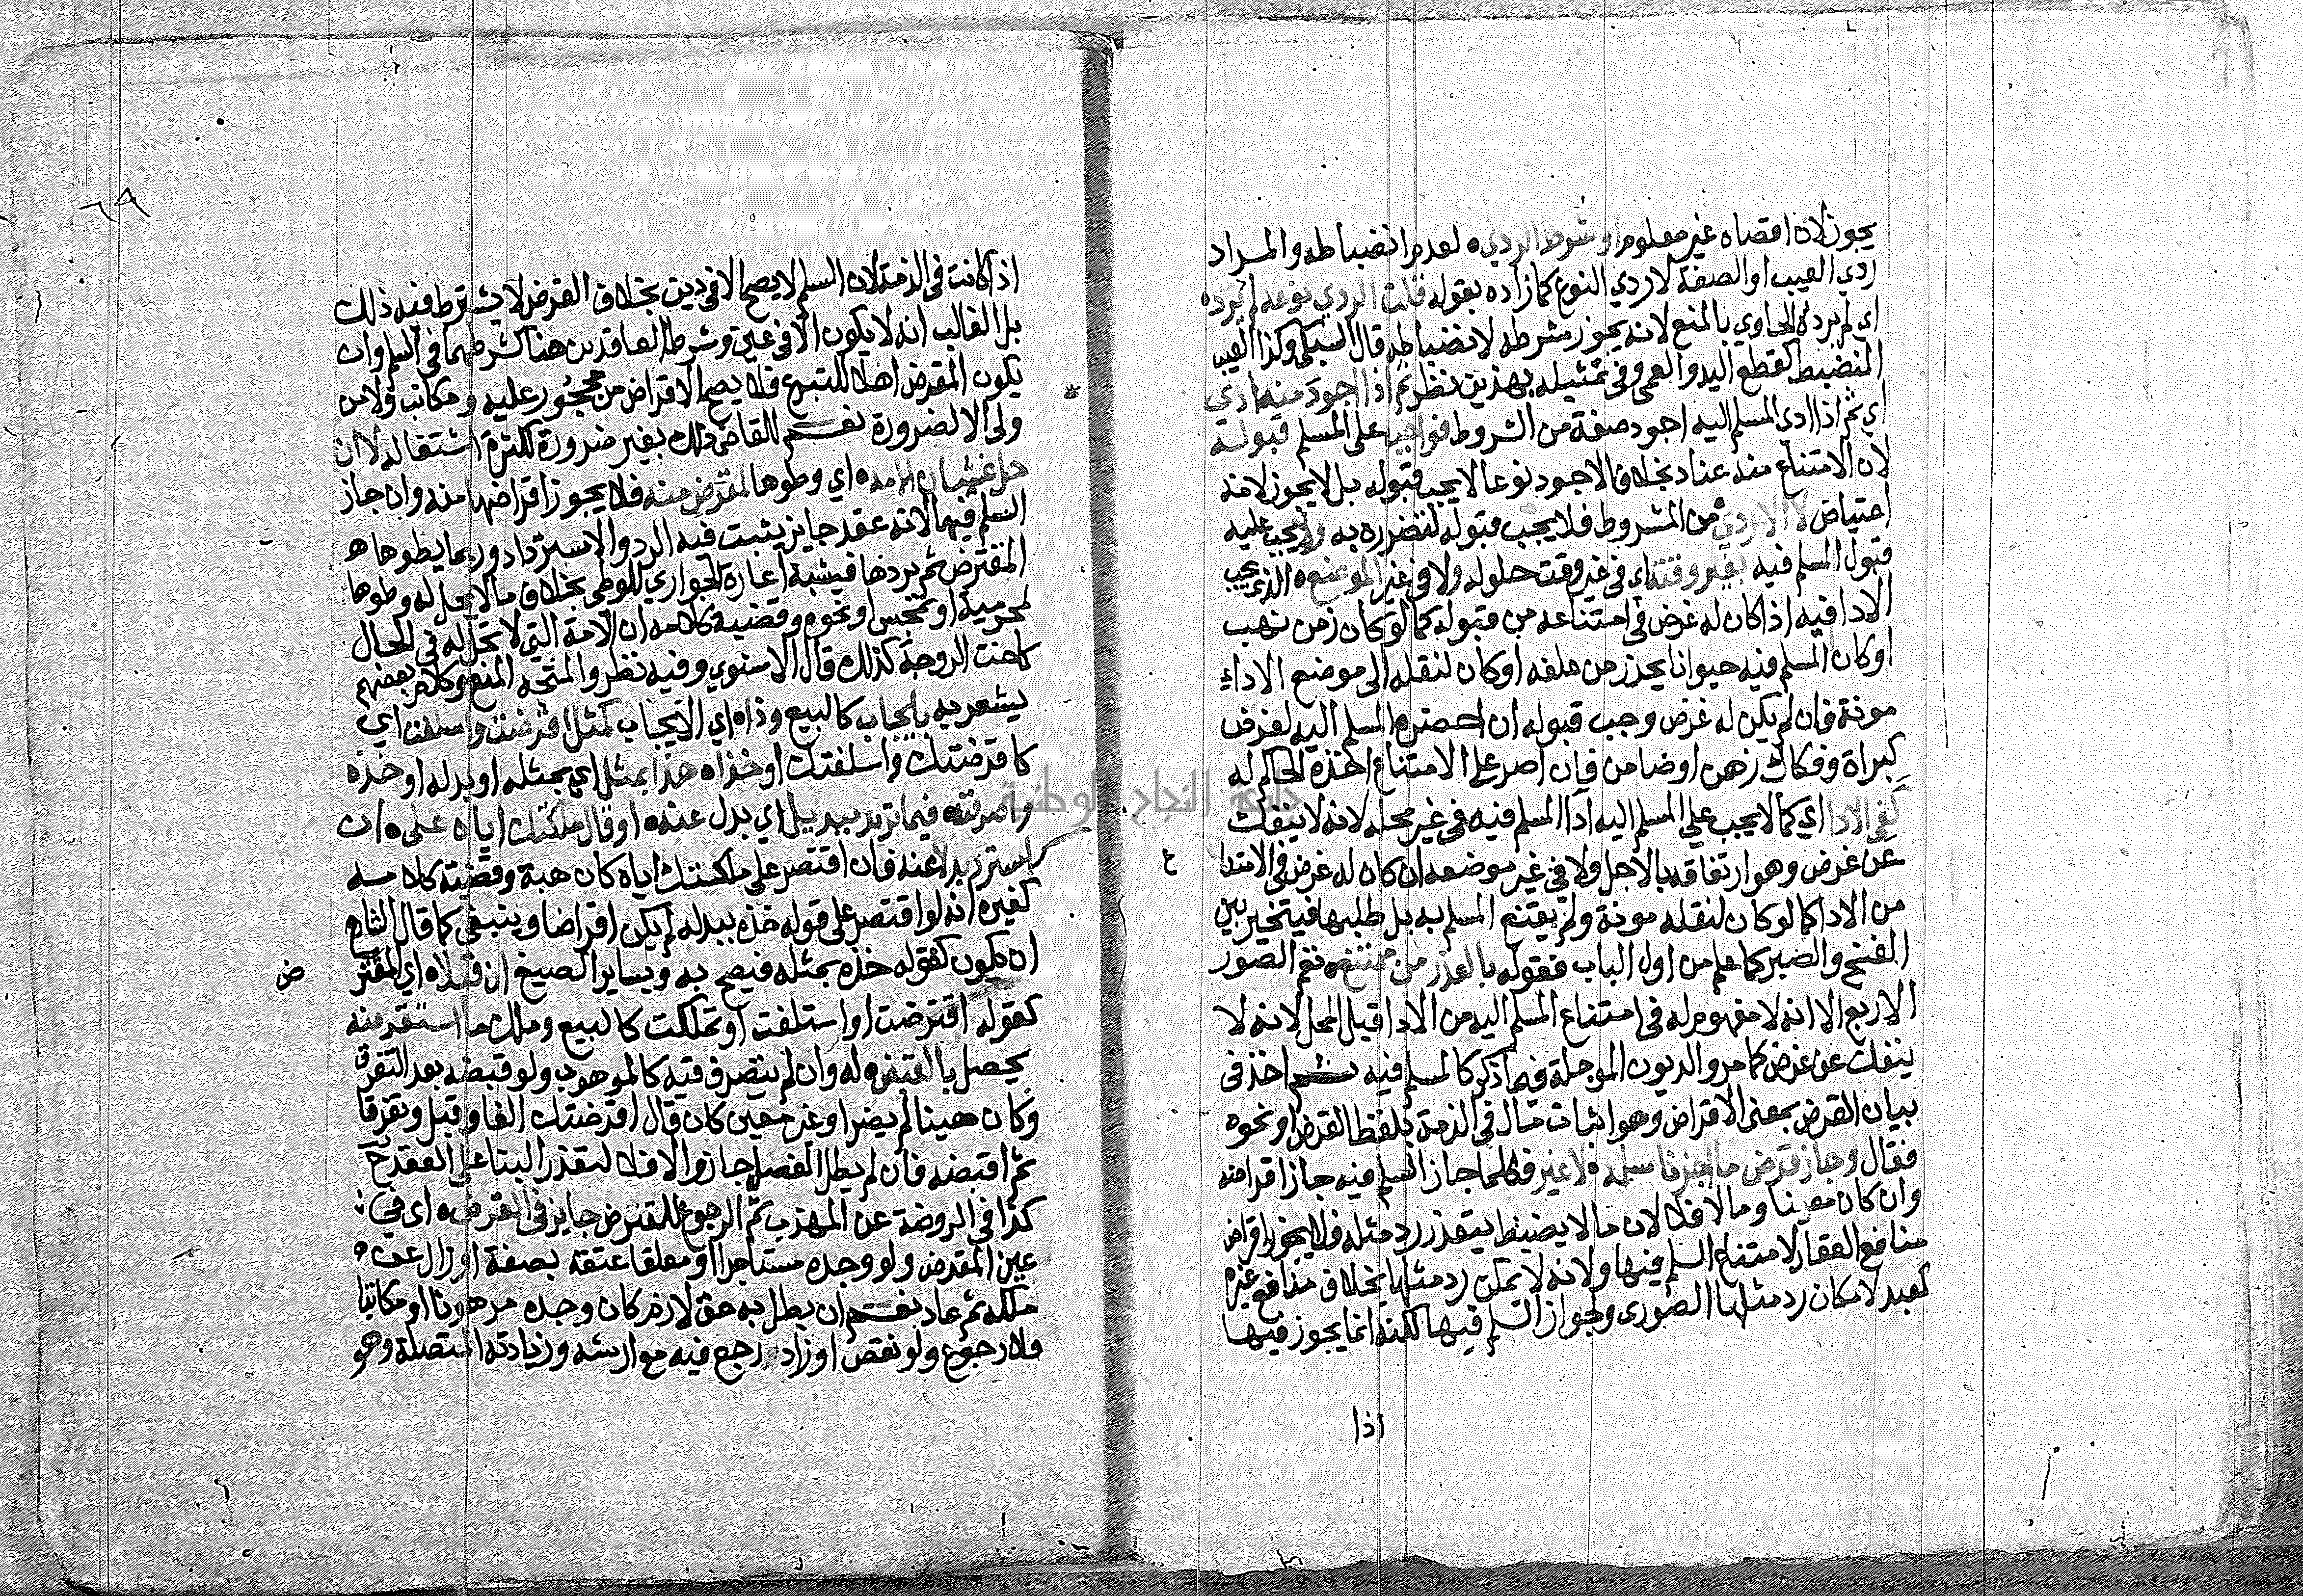 يجوز لان اقصاه غير معلوم او شرط الردي ه لعدم انضباطه والمراد
ردي العيب او الصفة لا ردي النوع كما زاده بقوله قلت الردي نوعه لم يرده
اي لم يرده الحاوي بالمنع لانه يجوز شرطه لانضباطه قال السبكي وكذا العيب
المنضبط كقطع اليد والعمى وفي تمثيله بهذين نظر ثم اذا اجود منه ادي
اي ثم اذا ادى المسلم اليه اجود صفة من الشروط فواجب على المسلم قبوله
لان الامتناع منه عناد بخلاف الاجود نوعا لا يجب قبوله بل لا يجوز لانه
اعتياض لا الاردي من المشروط فلا يجب قبوله لتضرره به ولا يجب عليه
قبول المسلم فيه بغير وقته اي في غير وقت حلوله ولا في غير الموضع ه الذي يجب
الادا فيه اذا كان له غرض في امتناعه من قبوله كما لو كان زمن نهب
او كان المسلم فيه حيوانا يحذر من علفه او كان لنقله الى موضع الاداء
مونة فان لم يكن له غرض وجب قبوله ان احضره المسلم اليه لغرض
كبراة وفكاك رهن او ضامن فان اصر على الامتناع اخذه الحاكم له
كفي الادا اي كما لا يجب علي المسلم اليه ادا المسلم فيه في غير محله لانه لا ينفك
عن غرض وهو ارتفاقه بالاجل ولا في غير موضعه ان كان له غرض في الامتنا ع
من الادا كما لو كان لنقله مونة ولم يقنع المسلم به بل طلبها فيتخير بين
الفسخ والصبر كما علم من اول الباب فقوله بالعذر من ممتنع ه تعم الصور
الاربع الا انه لا مفهوم له في امتناع المسلم اليه من الادا قبل المحل لانه لا
ينفك عن غرض كما مر والديون الموجلة فيما ذكر كالمسلم فيه ثم اخذ في
بيان القرض بمعنى الاقراض وهو اثبات مال في الذمة بلفظ القرض او نحوه
فقال وجاز قرض ما اجزنا سلمه ه لا غير فكلما جاز السلم فيه جاز اقراضه
وان كان معينا وما لا فلا لان ما لا يضبط يتعذر رد مثله فلا يجوز اقراض
منافع العقار لامتناع السلم فيها ولانه لا يمكن رد مثلها بخلاف منافع غيره
كعبد لامكان رد مثلها الصوري ولجواز السلم فيها لكنه انما يجوز فيها
اذا
٦٩
اذا كانت في الذمة لان السلم لا يصح الا في دين بخلاف القرض لا يشترط فيه ذلك
بل الغالب انه لا يكون الا في عين وشرط العاقدين هنا كشرطهما في السلم وان
يكون المقرض اهلا للتبرع فلا يصح الاقراض من محجور عليه ومكاتب ولا من
ولي الا لضرورة نعم للقاضي ذلك بغير ضرورة لكثرة اشتغاله لا ان
حل غشيان الامه ه اي وطوها لمقترض منه فلا يجوز اقراضها منه وان جاز
السلم فيها لانه عقد جايز يثبت فيه الرد والاسترداد وربما يطوها ه
المقترض ثم يردها فيشبه اعارة الجواري للوطي بخلاف ما لا يحل له وطوها
لمحرمية او تمجس او نحوه وقضية كلامه ان الامة التي لا تحل له في الحال
كاخت الزوجة كذلك قال الاسنوي وفيه نظر والمتجه المنع وكلام بعضهم
يشعر به بايجاب كالبيع وذا ه اي الايجاب كمثل اقرضت واسلفت اي
كاقرضتك واسلفتك او خذ ه هذا بمثل اي بمثله او بدله او خذه
واصرفته فيما تريد ببديل اي بدل عنده او قال ملكتك اياه على ه ان
استرد بدلا عنه فان اقتصر على ملكتك اياه كان هبة وقضية كلامه
كغيره انه لو اقتصر على قوله خذه ببدله لم يكن اقراضا وينبغي كما قال الشارح
ان يكون كقوله خذه بمثله فيصح به وبساير الصيغ ان قبلا ه اي المقتر ض
كقوله اقترضت او استلفت او تملكت كالبيع وملك ما استقرضه
يحصل بالقبض ه له وان لم يتصرف فيه كالموهوب ولو قبضه بعد التفرق
وكان معينا لم يضر او غير معين كان قال اقرضتك الفا وقبل وتفرقا
ثم اقبضه فان لم يطل الفصل جاز والا فلا لتعذر البنا على العقد ح
كذا في الروضة عن المهذب ثم الرجوع للمقرض جايز في القرض ه اي في
عين المقرض ولو وجده مستاجرا او معلقا عتقه بصفة او زال عن ه
ملكه ثم عاد نعم ان بطل به حق لازم كان وجده مرهونا او مكاتبا
فلا رجوع ولو نقص او زاد رجع فيه مع ارشه وزيادته المتصلة وهو
جامعة النجاح الوطنية